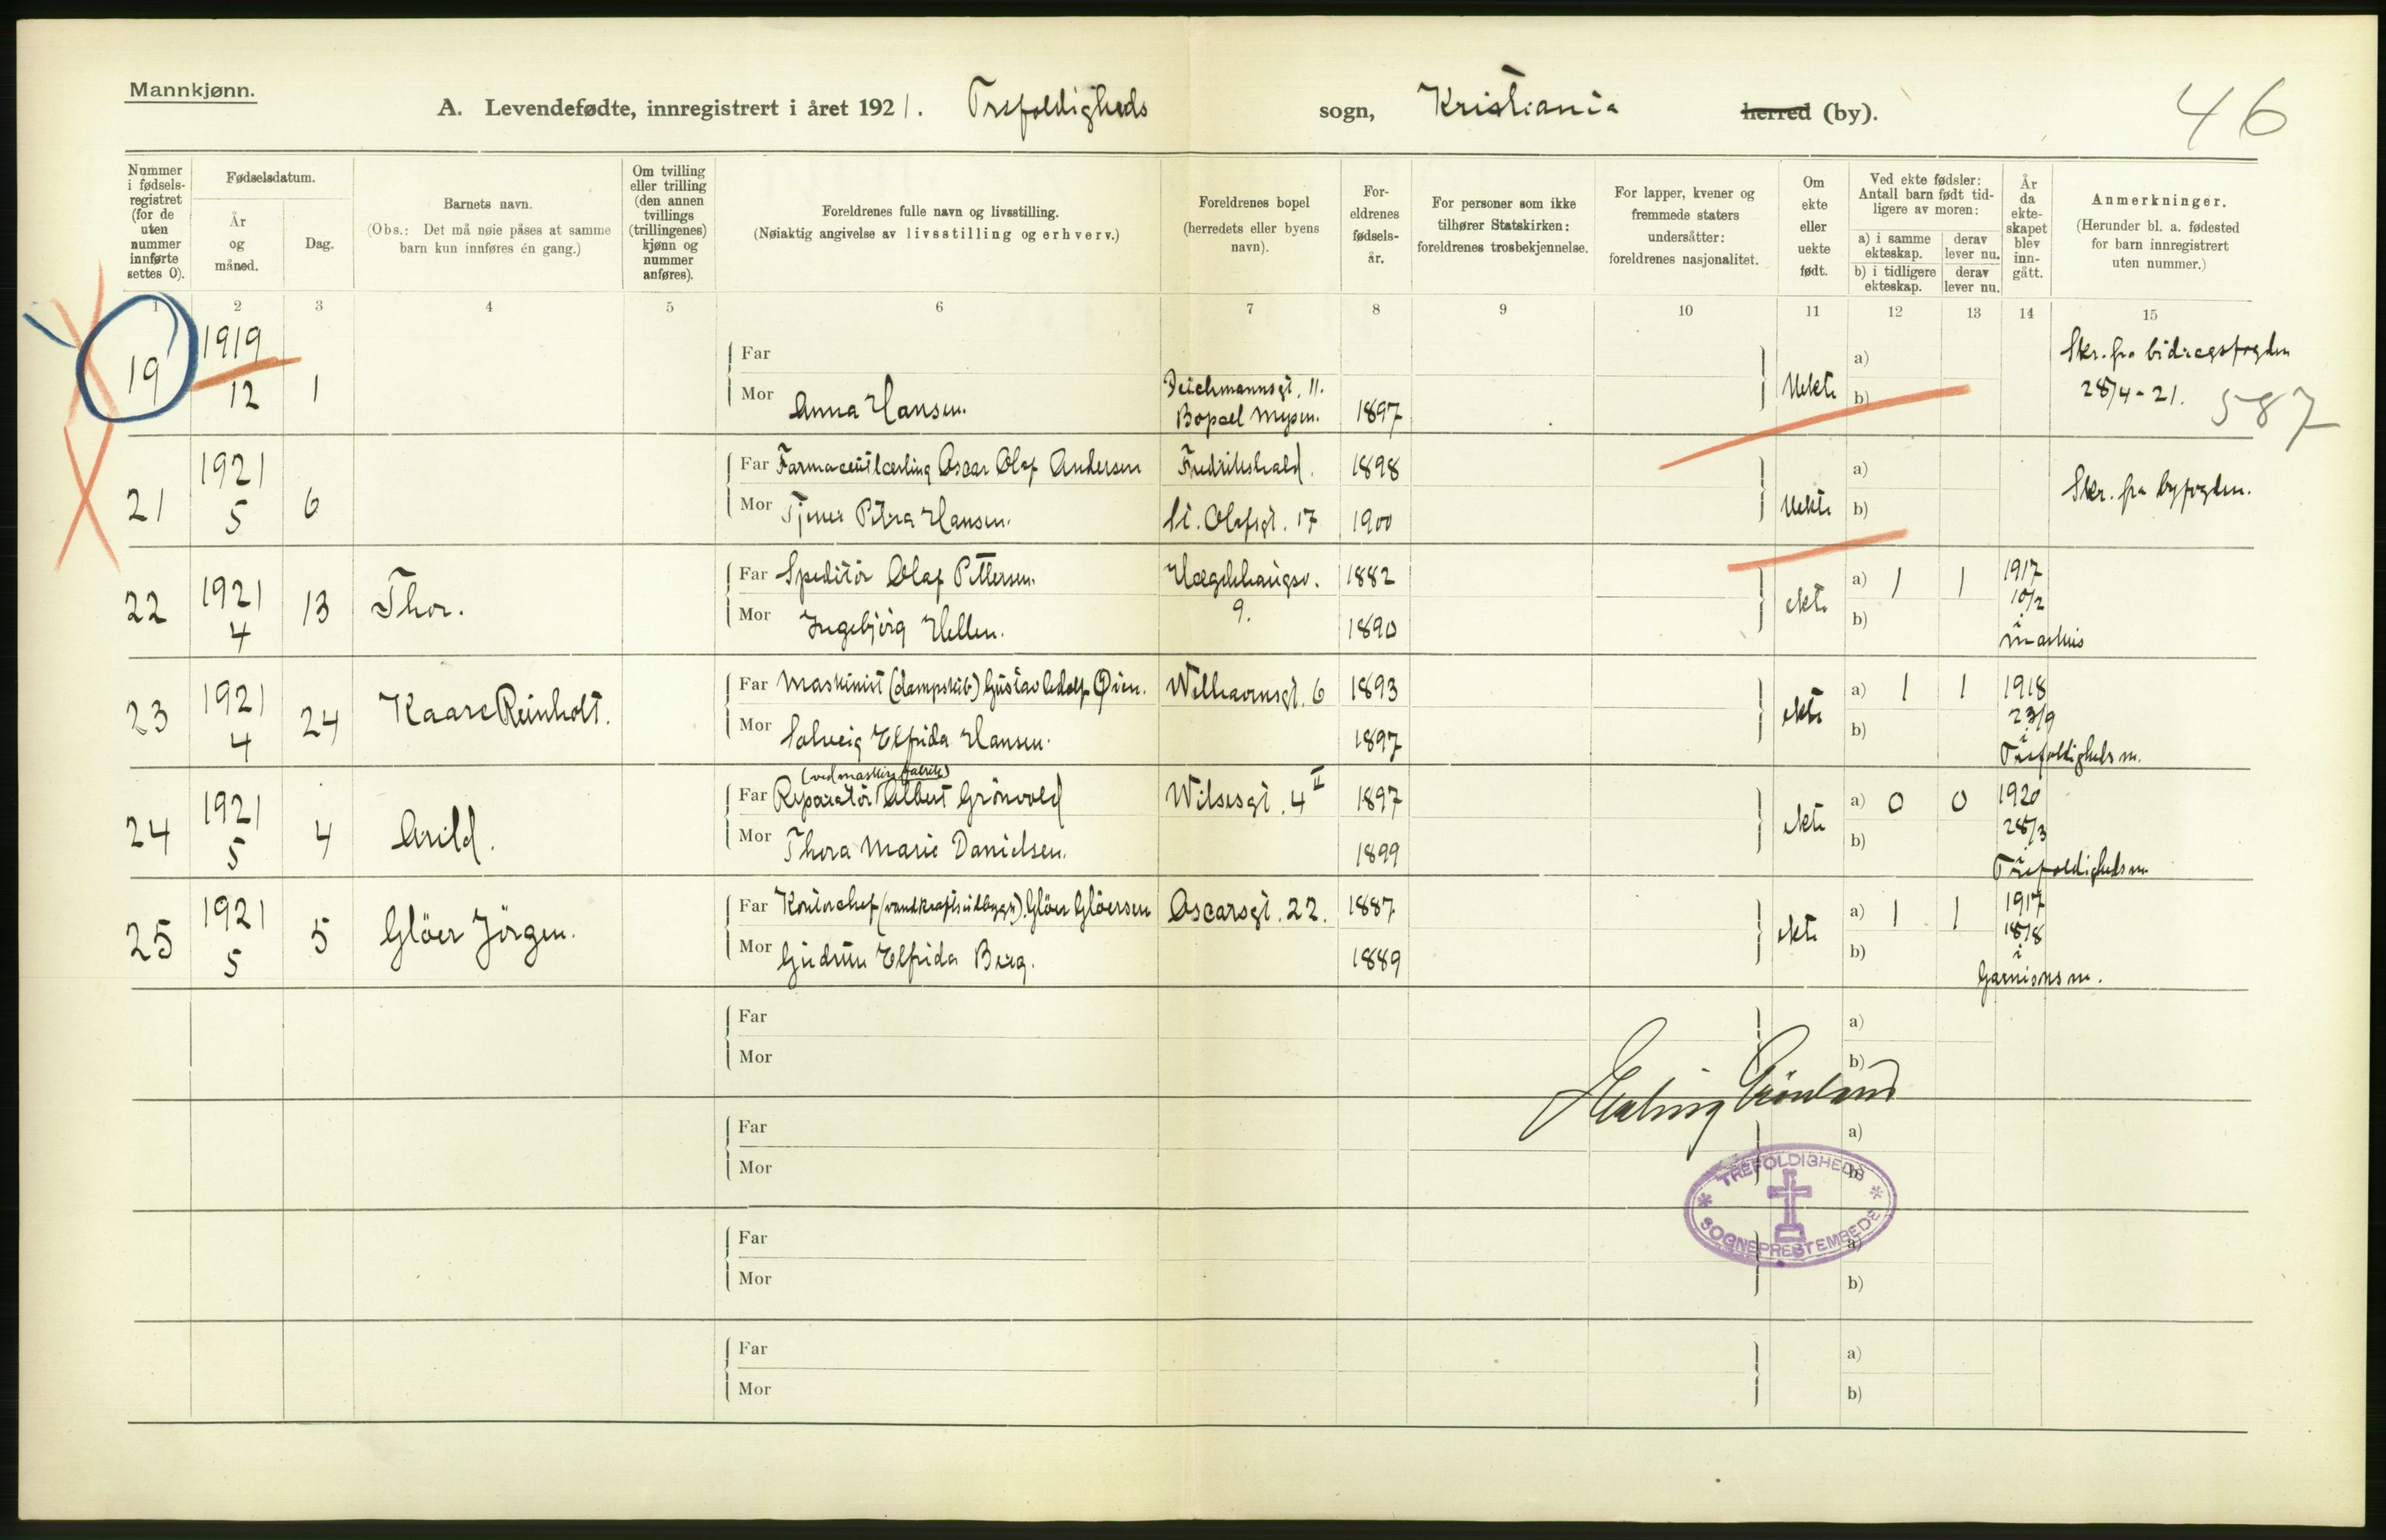 Mannkjønn.
A. Levendefødte, innregistrert i året 1921. Trefoldigheds sogn, Kristiania herred (by).
46
Nummer i fødsels-registret (for de uten nummer innførte settes 0).
Fødselsdatum.
År og måned.
Dag.
Barnets navn.
(Obs.: Det må nøie påses at samme barn kun innføres én gang.)
Om tvilling eller trilling (den annen tvillings (trillingenes) kjønn og nummer anføres).
Foreldrenes fulle navn og livsstilling.
(Nøiaktig angivelse av livsstilling og erhverv.)
Foreldrenes bopel (herredets eller byens navn).
For-eldrenes fødsels-år.
For personer som ikke tilhører Statskirken: foreldrenes trosbekjennelse.
For lapper, kvener og fremmede staters undersåtter: foreldrenes nasjonalitet.
Om ekte eller uekte født.
Ved ekte fødsler: Antall barn født tid-ligere av moren:
a) i samme ekteskap.
derav lever nu.
b) i tidligere ekteskap.
derav lever nu.
År da ekte-skapet blev inn-gått.
Anmerkninger.
(Herunder bl. a. fødested for barn innregistrert uten nummer.)
1 2 3 4 5 6 7 8 9 10 11 12 13 14 15
19 1919 12 1
Far
Mor Anna Hansen.
Deichmannsgt. 11.
Bopæl Mysen. 1897
Uekte
a)
b)
Skr. fra bidragsfogden
28/4-21.
587
21 1921 5 6
Far Farmaceutlærling Oscar Olaf Andersen Fredrikshald. 1898
Mor Tjener Petra Hansen. St. Olafsgt. 17 1900
Uekte
a)
b)
Skr. fra byfogden.
22 1921 4 13 Thor.
Far Speditör Olaf Pettersen. Hægdehaugsv. 9. 1882
Mor Ingebjörg Hellen. 1890
ekte
a) 1 1
b)
1917
10/2
i
Markus
23 1921 4 24 Kaare Reinholt.
Far Maskinist (dampskib) Gustav Adolf Øien. Welhavensgt. 6 1893
Mor Solveig Elfrida Hansen. 1897
ekte
a) 1 1
b)
1918
23/9
i
Trefoldigheds m.
24 1921 5 4 Arild.
(ved maskinfabrik)
Far Reparatör Albert Grönvold Wilsesgt. 4 II 1897
Mor Thora Marie Danielsen. 1899
ekte
a) 0 0
b)
1920
28/3
i
Trefoldigheds m.
25 1921 5 5 Glöer Jörgen.
Far Kontorchef (vandkraftsutbygg.) Glöer Glöersen Oscarsgt. 22. 1887
Mor Gudrun Elfrida Berg. 1889
ekte
a) 1 1
b)
1917
18/8
i
Garnisons m.
Far a)
Mor b)
Far a)
Mor b)
TREFOLDIGHEDS
SOGNEPRESTEMBEDE
Far a)
Mor b)
Far a)
Mor b)